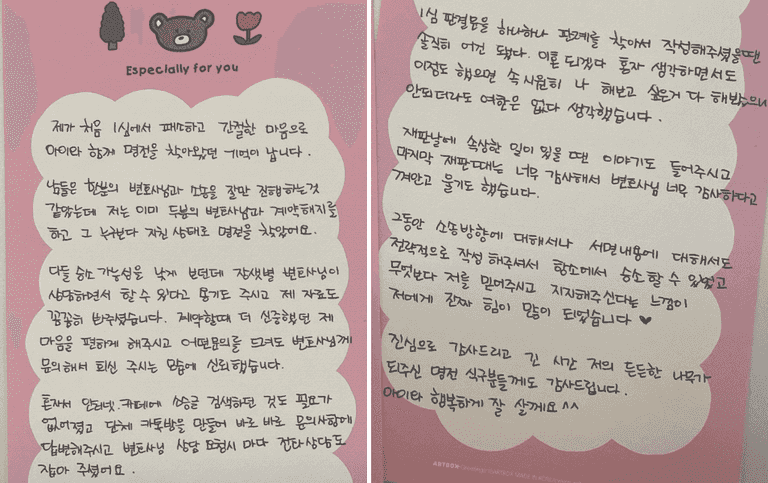 Especially for you
제가 처음 1심에서 패소하고 간절한 마음으로
아이와 함께 명전을 찾아왔던 기억이 납니다.
남들은 한분의 변호사님과 소송을 잘만 진행하는것
같았는데 저는 이미 두분의 변호사님과 계약해지를
하고 그 누구보다 지친 상태로 명전을 찾았어요.
다들 승소 가능성을 낮게 보던데 장샛별 변호사님이
상담하면서 할 수 있다고 용기도 주시고 제 자료도
꼼꼼히 봐주셨습니다. 계약할때 더 신중했던 제
마음을 편하게 해주시고 어떤문의를 드려도 변호사님께
문의해서 회신 주시는 모습에 신뢰했습니다.
혼자서 인터넷.카페에 소송을 검색하던 것도 필요가
없어졌고 단체 카톡방을 만들어 바로 바로 문의사항에
답변해주시고 변호사님 상담 요청시 마다 전화상담도
잡아 주셨어요.
1심 판결문을 하나하나 판례를 찾아서 작성해주셨을땐
솔직히 이건 됐다. 이혼 되겠다 혼자 생각하면서도
이정도 했으면 속 시원히 나 해보고 싶은거 다 해봤으니
안되더라도 여한은 없다 생각했습니다.
재판날에 속상한 일이 있을 땐 이야기도 들어주시고
마지막 재판때는 너무 감사해서 변호사님 너무 감사하다고
껴안고 울기도 했습니다.
그동안 소송방향에 대해서나 서면내용에 대해서도
전략적으로 작성 해주셔서 항소에서 승소할 수 있었고
무엇보다 저를 믿어주시고 지지해주신다는 느낌이
저에게 진짜 힘이 많이 되었습니다 ♥
진심으로 감사드리고 긴 시간 저의 든든한 나무가
되주신 명전 식구분들께도 감사드립니다.
아이와 행복하게 잘 살게요^^
ARTBOX